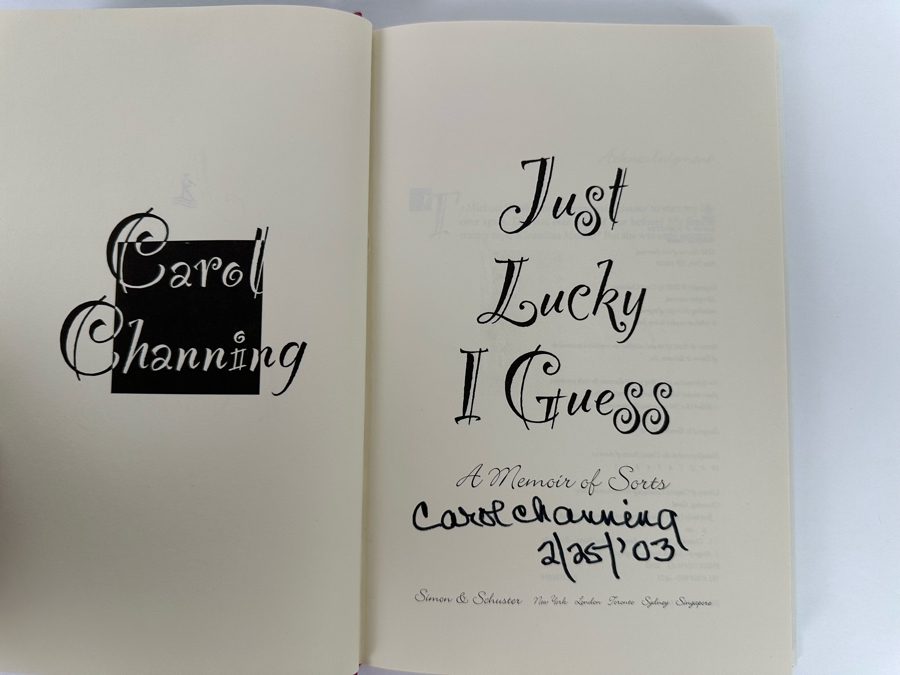 Carol
Channing
Just
Lucky
I Guess
A Memoir of Sorts
Carol Channing
2/25/'03
Simon & Schuster New York London Toronto Sydney Singapore